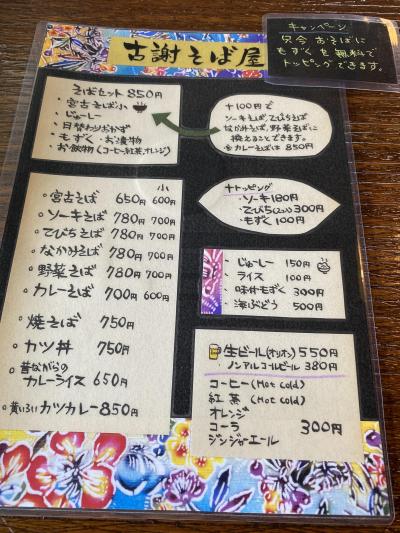 古謝そば屋
キャンペーン
只今 おそばに
もずくを無料で
トッピングできます。
そばセット 850円
・宮古そば小
・じゅーしー
・日替わりおかず
・もずく・お漬物
・お飲物(コーヒー,紅茶,オレンジ)
+100円で
ソーキそば,てびちそば
なかみそば,野菜そばに
換えることできます。
※カレーそばは 850円
小
・宮古そば 650円 600円
・ソーキそば 780円 700円
・てびちそば 780円 700円
・なかみそば 780円 700円
・野菜そば 780円 700円
・カレーそば 700円 600円
・焼そば 750円
・カツ丼 750円
・昔ながらの
カレーライス 650円
・黄いろいカツカレー 850円
+トッピング
・ソーキ 180円
・てびち(2コ) 300円
・もずく 100円
・じゅーしー 150円
・ライス 100円
・味付もずく 300円
・海ぶどう 500円
生ビール(オリオン) 550円
ノンアルコールビール 380円
コーヒー(Hot cold)
紅茶(Hot cold)
オレンジ
コーラ
ジンジャーエール
300円